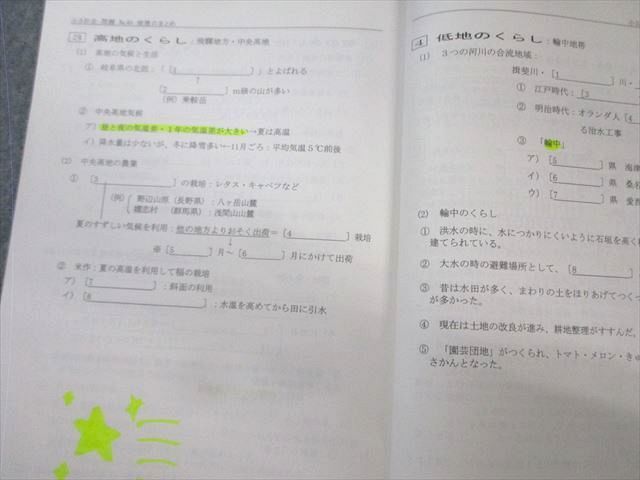 高地のくらし：飛騨地方・中央高地
(1) 高地の気候と生活
① 岐阜県の北部：「[1 ]」とよばれる
[2 ] m級の山が多い
(例) 乗鞍岳
② 中央高地気候
ア) 昼と夜の気温差・1年の気温差が大きい→夏は高温
イ) 降水量は少ないが、冬に降雪多い←11月ごろ：平均気温5℃前後
(2) 中央高地の農業
① [3 ] の栽培：レタス・キャベツなど
(例) 野辺山原 (長野県)：八ヶ岳山麓
嬬恋村 (群馬県)：浅間山山麓
夏のすずしい気候を利用：他の地方よりおそく出荷＝[4 ] 栽培
↓
※ [5 ] 月～ [6 ] 月にかけて出荷
② 米作：夏の高温を利用して稲の栽培
ア) [7 ]：斜面の利用
イ) [8 ]：水温を高めてから田に引水
4 低地のくらし：輪中地帯
(1) 3つの河川の合流地域：
揖斐川・[1 ] 川・
① 江戸時代：[3
② 明治時代：オランダ人 [4
る治水工事
③ 「輪中」
ア) [5 ] 県 海津
イ) [6 ] 県 桑名
ウ) [7 ] 県 愛西
(2) 輪中のくらし
① 洪水の時に、水につかりにくいように石垣を高く
建てられている。
② 大水の時の避難場所として、[8
③ 昔は水田が多く、まわりの土をほりあげてつく
が多かった。
④ 現在は土地の改良が進み、耕地整理がすすんだ。
⑤ 「園芸団地」がつくられ、トマト・メロン・きゅ
さかんとなった。